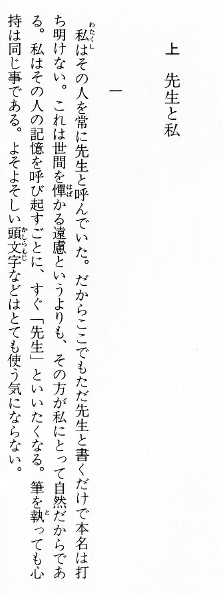 上 先生と私
一
私はその人を常に先生と呼んでいた。だからここでもただ先生と書くだけで本名は打
ち明けない。これは世間を憚かる遠慮というよりも、その方が私にとって自然だからであ
る。私はその人の記憶を呼び起すごとに、すぐ「先生」といいたくなる。筆を執っても心
持は同じ事である。よそよそしい頭文字などはとても使う気にならない。